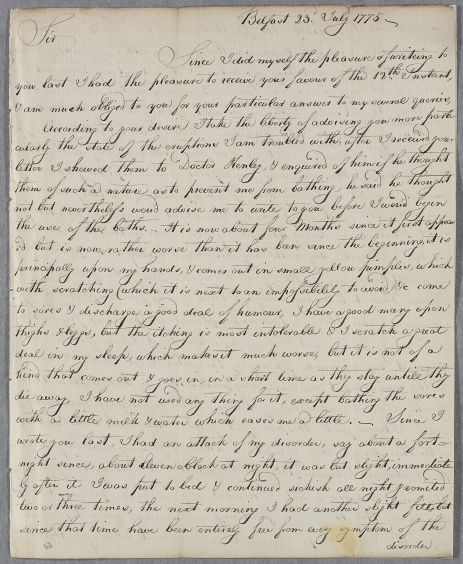 Belfast 23. July 1775 –
Sir
Since I did myself the pleasure of writeing to
you last I had the pleasure to receive your favour of the 12th Instant,
& am much obliged to you for your particular answer to my several queries,
According to your desire I take the liberty of advising you more parti-
cularly the state of the eruptions I am troubled with, after I received your
letter I shewed them to Doctor Henley, & enquired of him if he thought
them of such a nature as to prevent me from bathing, he said he thought
not but nevertheless woud advise me to write to you before I woud begin
the use of the baths. – It is now about four Months since it first appear
'd but is now rather worse than it has been since the beginning, it is
principally upon my hands, & comes out in small yellow pumples, which
with scratching (which it is next to an impossibility to avoid) be come
to sores & discharge a good deal of humour, I have a good many upon
thighs & leggs, but the itching is most intolerable & I scratch a great
deal in my sleep, which makes it much worse, but it is not of a
kind that comes out & goes in, in a short time as they stay untill they
die away, I have not used any thing for it, except bathing the sores
with a little milk & water which eases me a little. – Since I
wrote you last, I had an attack of my disorder, say about a fort-
night since, about eleven aClock at night, it was but slight, immediate
ly after it I was put to bed & continued sickish all night & vomited
two or three times, the next morning I had another slight fitt, but
since that time have been entirely free from every symptom of the
disorder